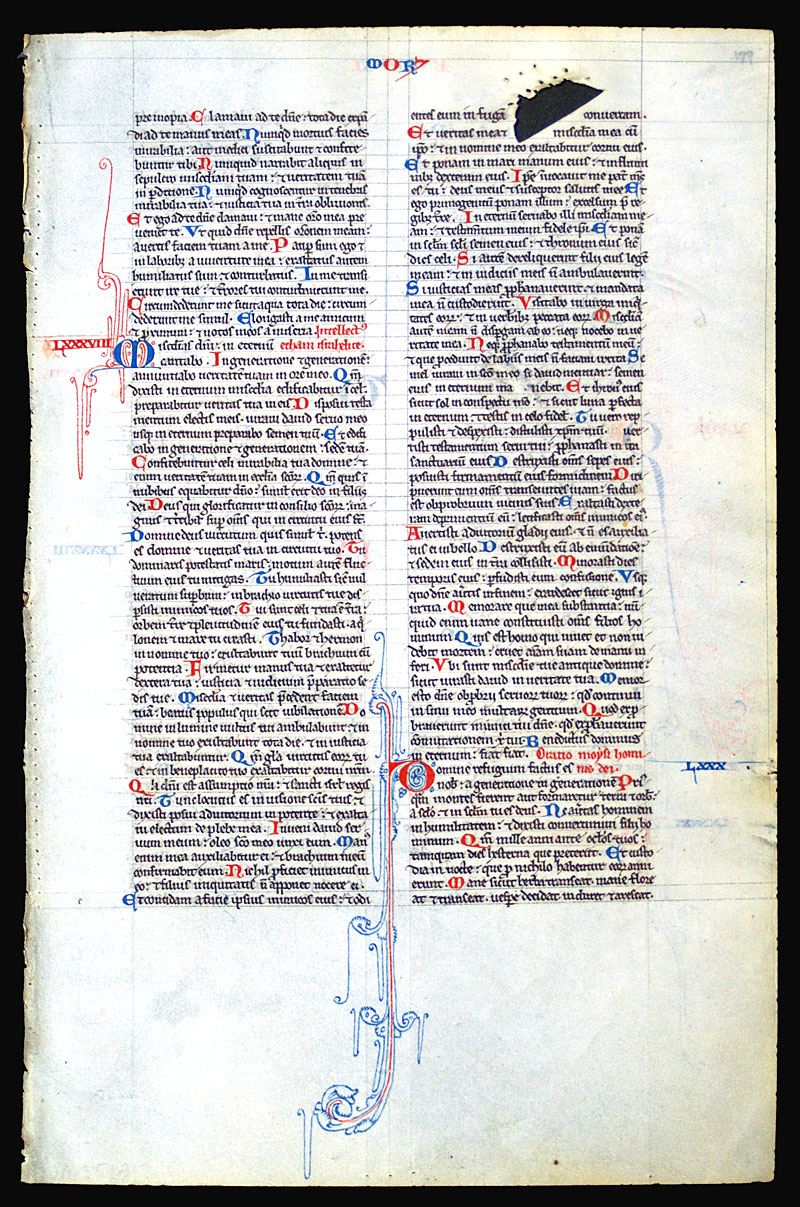 mORZ
pre inopia. Clamaui ad te dñe: tota die expā
di ad te manus meas. Nunqid mortuis facies
mirabilia: aut medici suscitabunt & confite
buntur tibi. Nunquid narrabit aliquis in
sepulcro miscdiam tuam: & ueritatem tuam
in pditione. Nunqid cognoscentur in tenebris
mirabilia tua: & iusticia tua in tīra obliuionis.
Et ego ad te dñe clamaui: & mane oro mea pre
ueniet te. Vt quid dñe repellis orōnem meam:
auertis faciem tuam a me. Paup sum ego &
in laborib; a iuuentute mea: exaltatus autem
humiliatus sum & conturbatus. In me transi
erunt ire tue: & trores tui conturbauerunt me.
Circumdederunt me sicut aqua tota die: circum
dederunt me simul. Elongasti a me amicum
& proximū: & notos meos a miseria. Intellect9
LXXXVIII
Misericdias dñi: in eternū ethani israhelite.
cantabo. In generatione & generationē:
annuntiabo ueritatē tuam in ore meo. Qm̄
dixisti in eternum miscdia edificabitur i celi:
preparabitur ueritas tua in eis. Disposui testa
mentum electis meis. iuraui dauid seruo meo
usq; in eternum preparabo semen tuū. Et edifi
cabo in generatione & generationem: sedē tuā.
Confitebuntur celi mirabilia tua domine: &
enim ueritatē tuam in ecclīa scōrꝝ. Qm̄ quis ī
nubibus equabitur dño: similis erit deo in filiis
dei. Deus qui glorificatur in consilio scōrꝝ: ma
gnus & tribil' sup om̄s qui in circuitu eius st̄.
Domine deus uirtutum quis similis t̄: potens
es domine & ueritas tua in circuitu tuo. Tu
dominaris potestatis maris: motum autē fluc
tuum eius tu mitigas. Tu humiliasti sic uul
neratum supbum: in brachio uirtutis tue dis
psisti inimicos tuos. Tui sunt celi & tua ē tīra:
orbem tre & plenitudinem eius tu fundasti. aq̄
lonem & mare tu creasti. Thabor & hermon
in nomine tuo exultabunt: tuum brachium cū
potentia. Firmetur manus tua & exaltetur
dextera tua: iusticia & iudicium ppparatio se
dis tue. Misedia & ueritas pcedent faciem
tuā: beatus populus qui scit iubilationē. Do
mine in lumine uultus tui ambulabunt & in
nomine tuo exultabunt tota die. & in iusticia
tua exaltabuntur. Qm̄ gla uirtutis eorꝝ tu
es & in beneplacito tuo exaltabitur cornu nr̄m.
Quia dñi est assumptio nr̄a: & sancti isrl' regis
nr̄i. Tunc locutus es in uisione scīs tuis &
dixisti posui adiutorium in potente: & exalta
ui electum de plebe mea. Inueni dauid ser
uum meum: oleo scō meo unxi eum. Man9
enim mea auxiliabitur ei: & brachium meū
confirmabit eum. Nichil pficiet inimicus in
eo: & filius iniquitatis n̄ apponet nocere ei.
Et concidam a facie ipsius inimicos eius: & odi
entes eum in fugā conuertam.
Et ueritas mea & miscdia mea cū
ipo: & in nomine meo exaltabitur cornu eius.
Et ponam in mari manum eius: & in flumi
nib; dexteram eius. Ipse inuocauit me pater m̄s
es tu: deus meus & susceptor salutis mee. Et
ego primogenitū ponam illum: excelsum p̄ re
gib; tre. In eternū seruabo illi miscdiam me
am: & testamentum meum fidele ipi. Et ponā
in sc'lm sc'li semen eius: & thronum eius sic
dies celi. Si autē dereliquerint filii eius legē
meam: & in iudiciis meis n̄ ambulauerint.
Si iusticias meas pphanauerint: & mandata
mea n̄ custodierint. Visitabo in uirga iniq
tates eorꝝ: & in uerberib; peccata eorꝝ. Misc̄dia
autē meam n̄ dispgam ab eo: neq; nocebo in ue
ritate mea. Neq; pphanabo testamentū meū:
& que procedunt de labiis meis n̄ faciam irrita. Se
mel iuraui in scō meo si dauid mentiar: semen
eius in eternum ma nebit. Et thron9 eius
sicut sol in conspectu meo: & sicut luna pfecta
in eternum & testis in celo fidel'. Tu uero rep
pulisti & despexisti: distulisti xp̄m tuū. uer
tisti testamentum serui tui: pphanasti in tīra
sanctuariū eius. Destruxisti om̄s sepes eius:
posuisti firmamentū eius formidinem. Diri
puerunt eum om̄s transeuntes uiam: factus
est obprobrium uicinis suis. Exaltasti dexte
ram deprimentiū eū: letificasti om̄s inimicos ei9.
Auertisti adiutoriū gladii eius: & n̄ es auxilia
tus ei in bello. Destruxisti eū ab emūdatiōe:
& sedem eius in tīra collisisti. Minorasti dies
temporis eius: pfudisti eum confusione. Vsq;
quo dñe auertis in finem: exardescet sicut ignis i
ra tua. Memorare que mea substantia: nū
quid enim uane constituisti om̄s filios ho
minum. Quis est homo qui uiuet & non ui
debit mortem: eruet aīam suam de manu in
feri. Vbi sunt misc̄die tue antique domine:
sicut iurasti dauid in ueritate tua. Memor
esto dñe obprobrii seruorꝝ tuorꝝ: qd continui
in sinu meo multarꝝ gentium. Quod expro
brauerunt inimici tui dñe. qd exprobrauerunt
commutationem xp̄i tui. Benedictus dominus
in eternum: fiat fiat. Oratio moysi homi
LXXX
Domine refugium factus es nis dei.
nob: a generatione in generationē. Pri9
qm̄ montes fierent aut formaretur terra & orb:
a sc'lo & in sc'lm tu es deus. Ne auertas hominem
in humilitatem: & dixisti conuertimini filii ho
minum. Qm̄ mille anni ante oc'los tuos:
tanquam dies hesterna que preteriit. Et custo
dia in nocte: que p nichilo habentur eorꝝ anni
erunt. Mane sicut herba transeat. mane flore
at & transeat. uespe decidat induret & arescat.